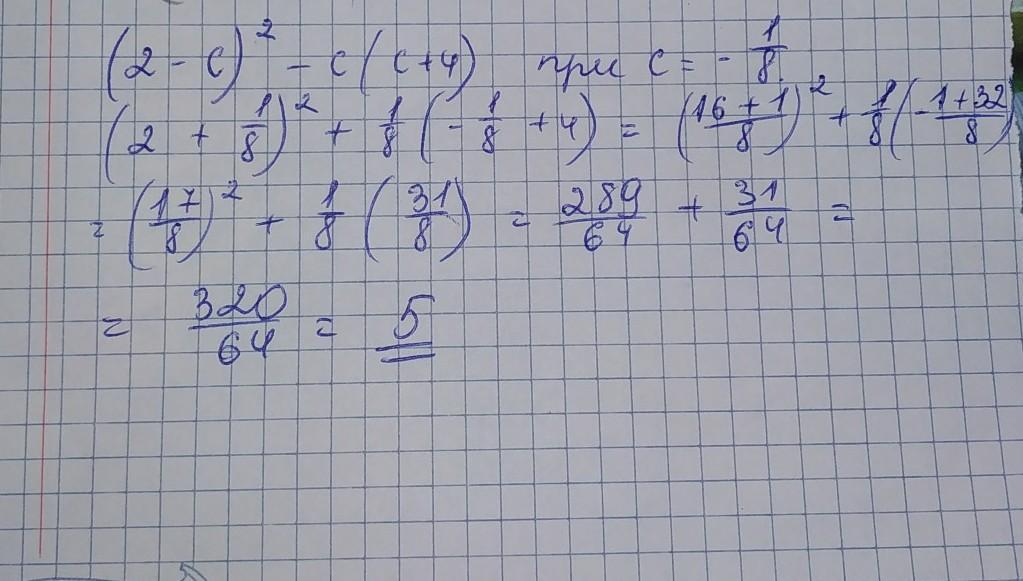 (2 - c)² - c(c+4) при c = - 1/8
(2 + 1/8)² + 1/8 (- 1/8 + 4) = ((16 + 1)/8)² + 1/8 ((-1+32)/8)
= (17/8)² + 1/8 (31/8) = 289/64 + 31/64 =
= 320/64 = 5